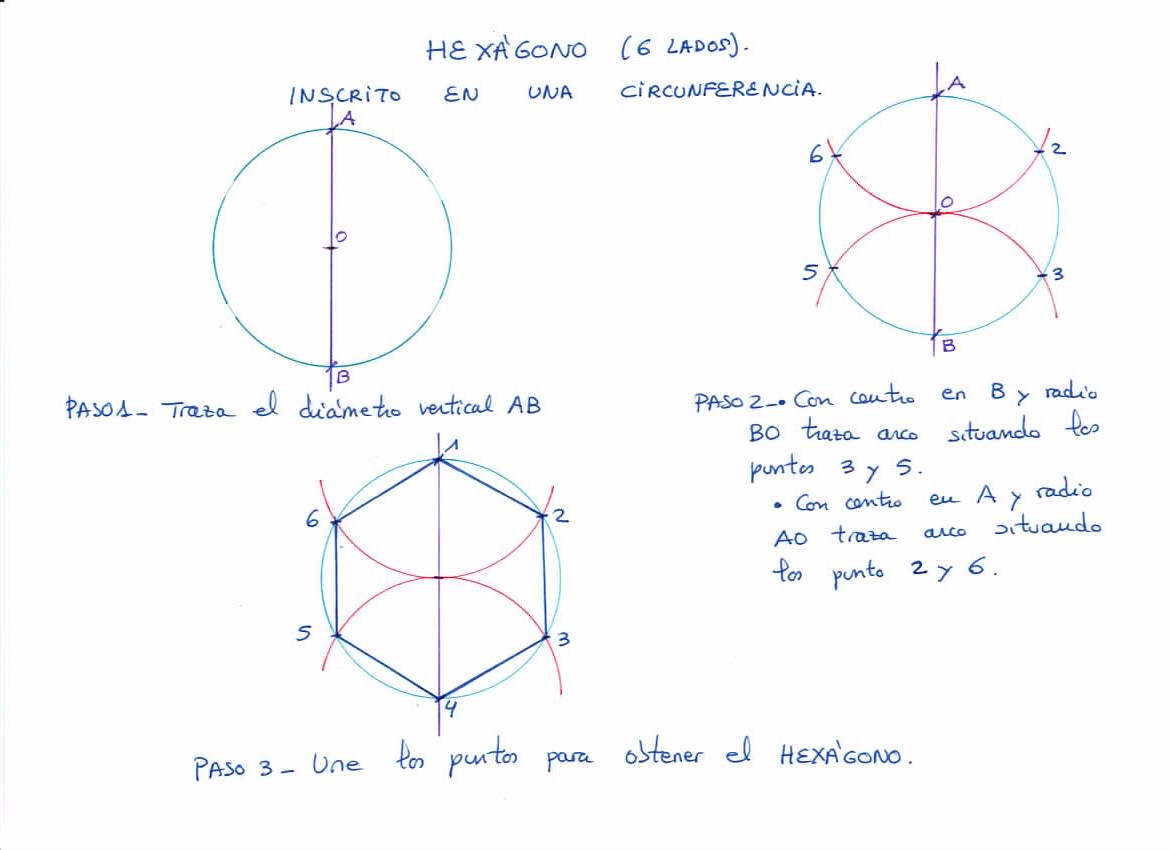 HEXÁGONO (6 LADOS).
INSCRITO EN UNA CIRCUNFERENCIA.
A
O
B
PASO 1- Traza el diámetro vertical AB
A
6
2
O
5
3
B
PASO 2-• Con centro en B y radio
BO traza arco situando los
puntos 3 y 5.
• Con centro en A y radio
AO traza arco situando
los punto 2 y 6.
1
6
2
5
3
4
PASO 3- Une los puntos para obtener el HEXÁGONO.